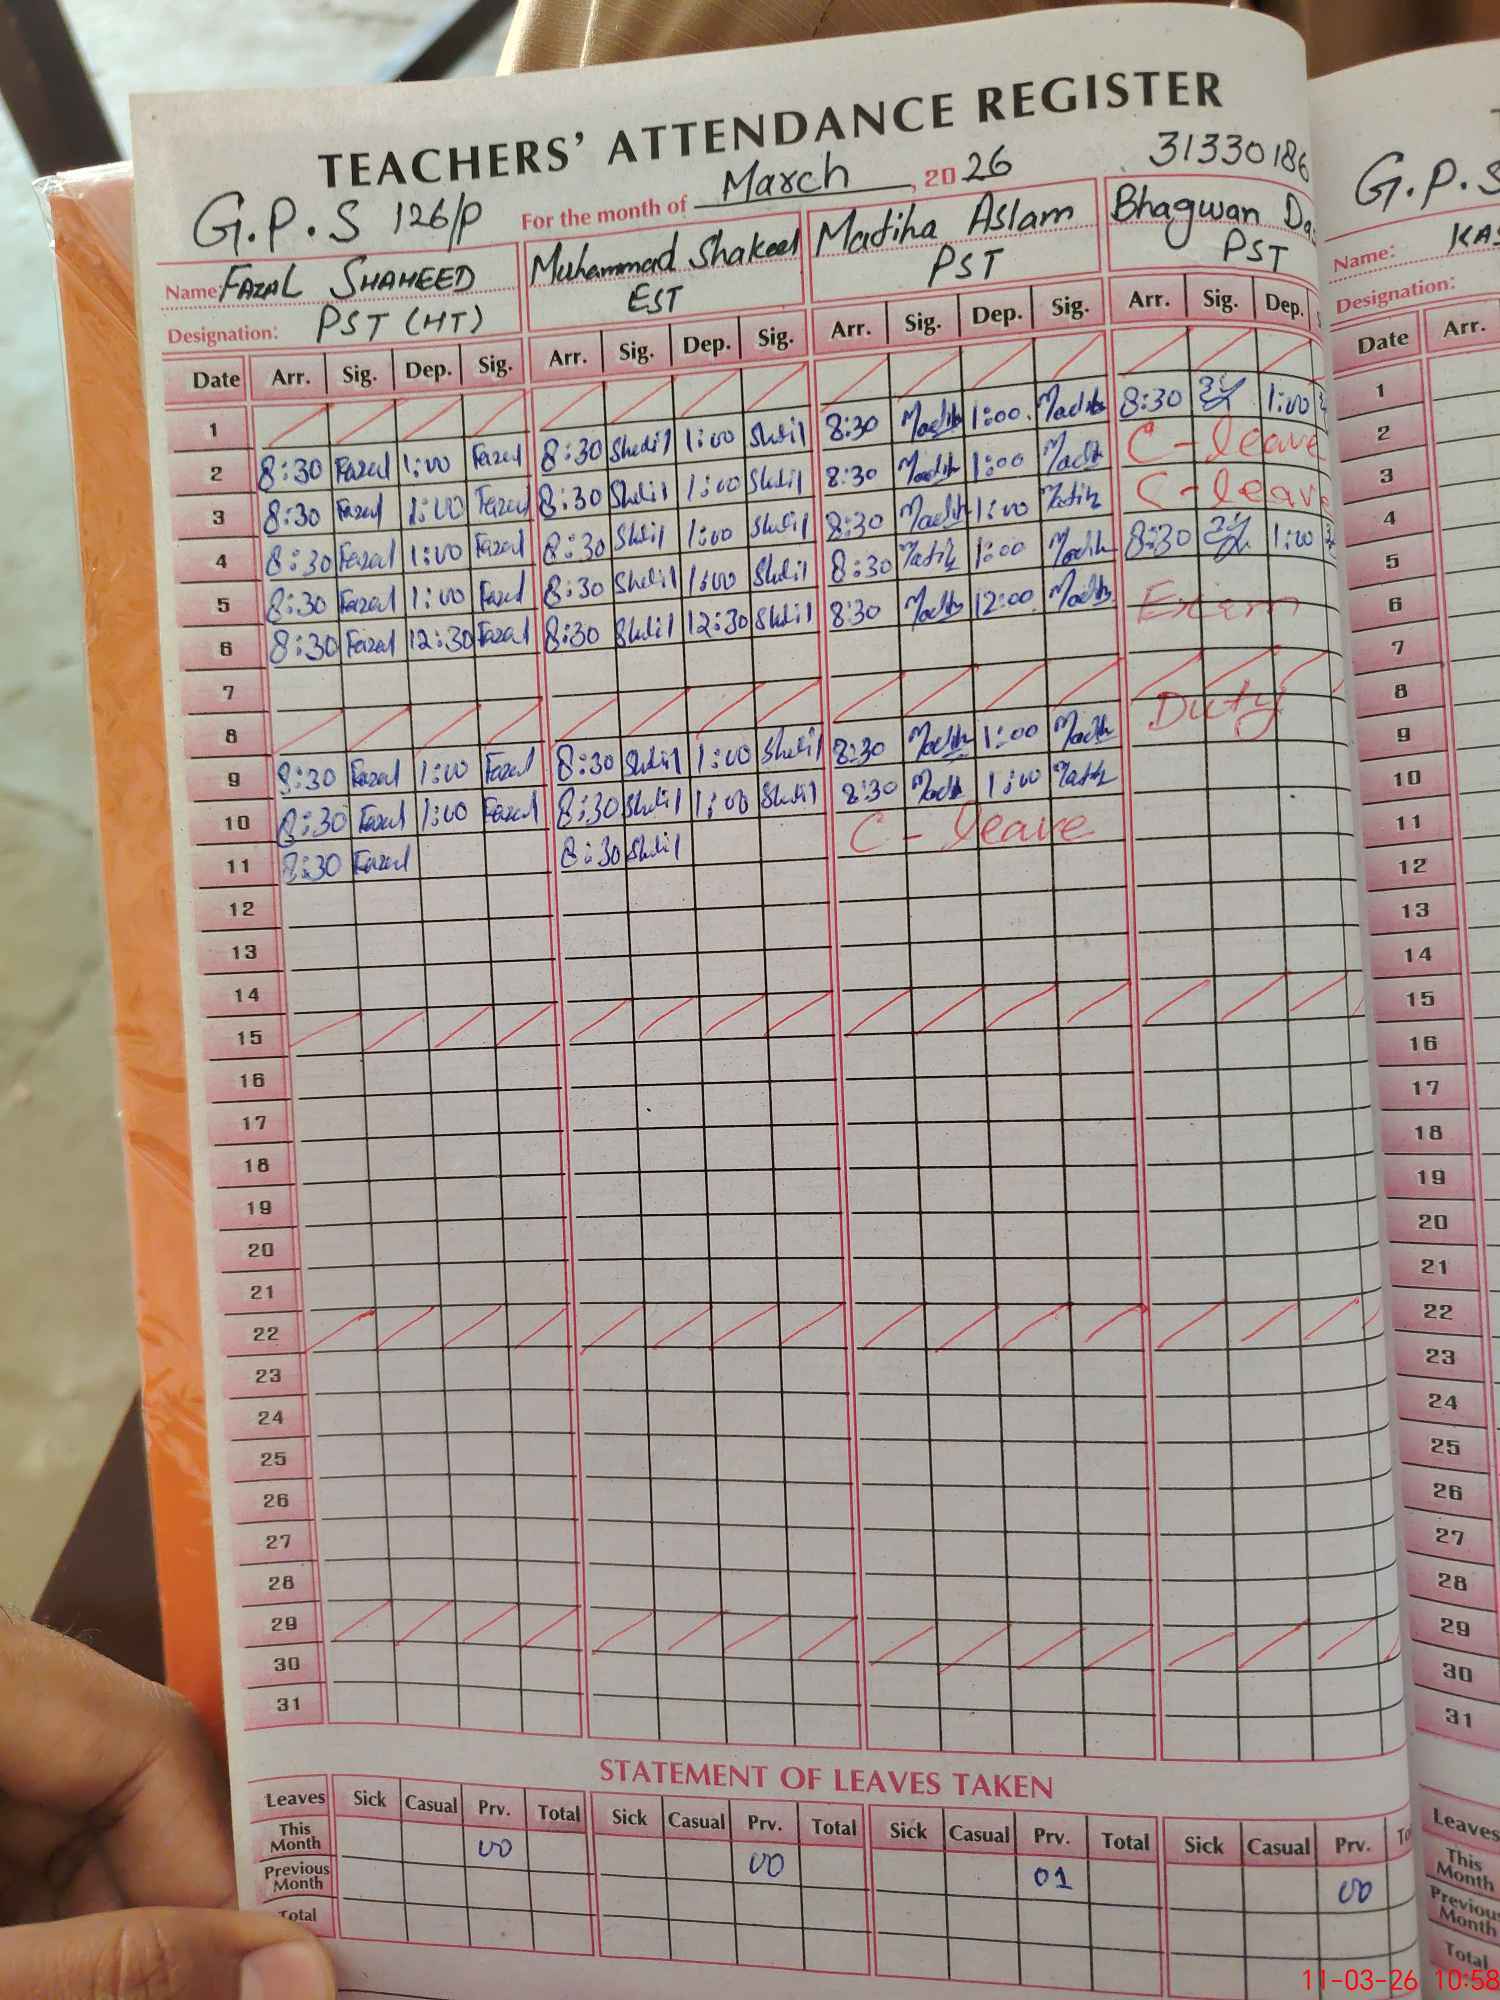 TEACHERS' ATTENDANCE REGISTER
G.P.S 126/P For the month of March, 2026 31330186
Name: FAZAL SHAHEED Muhammad Shakeel Madiha Aslam Bhagwan Da
Designation: PST (HT) EST PST PST
Date Arr. Sig. Dep. Sig. Arr. Sig. Dep. Sig. Arr. Sig. Dep. Sig. Arr. Sig. Dep.
1
2 8:30 Fazal 1:00 Fazal 8:30 1:00 8:30 1:00 8:30 1:00
3 8:30 Fazal 1:00 Fazal 8:30 1:00 8:30 1:00 C - leave
4 8:30 Fazal 1:00 Fazal 8:30 1:00 8:30 1:00 C - leave
5 8:30 Fazal 1:00 Fazal 8:30 1:00 8:30 1:00 8:30 1:00
6 8:30 Fazal 12:30 Fazal 8:30 12:30 8:30 12:00 Exam
7
8 Duty
9 8:30 Fazal 1:00 Fazal 8:30 1:00 8:30 1:00
10 8:30 Fazal 1:00 Fazal 8:30 1:00 8:30 1:00
11 8:30 Fazal 8:30 C - leave
12
13
14
15
16
17
18
19
20
21
22
23
24
25
26
27
28
29
30
31
STATEMENT OF LEAVES TAKEN
Leaves Sick Casual Prv. Total Sick Casual Prv. Total Sick Casual Prv. Total Sick Casual Prv. To
This Month 00 00 01 00
Previous Month
Total
G.P.S
Name: KAS
Designation:
Date Arr.
1
2
3
4
5
6
7
8
9
10
11
12
13
14
15
16
17
18
19
20
21
22
23
24
25
26
27
28
29
30
31
Leaves
This Month
Previous Month
Total
11-03-26 10:58